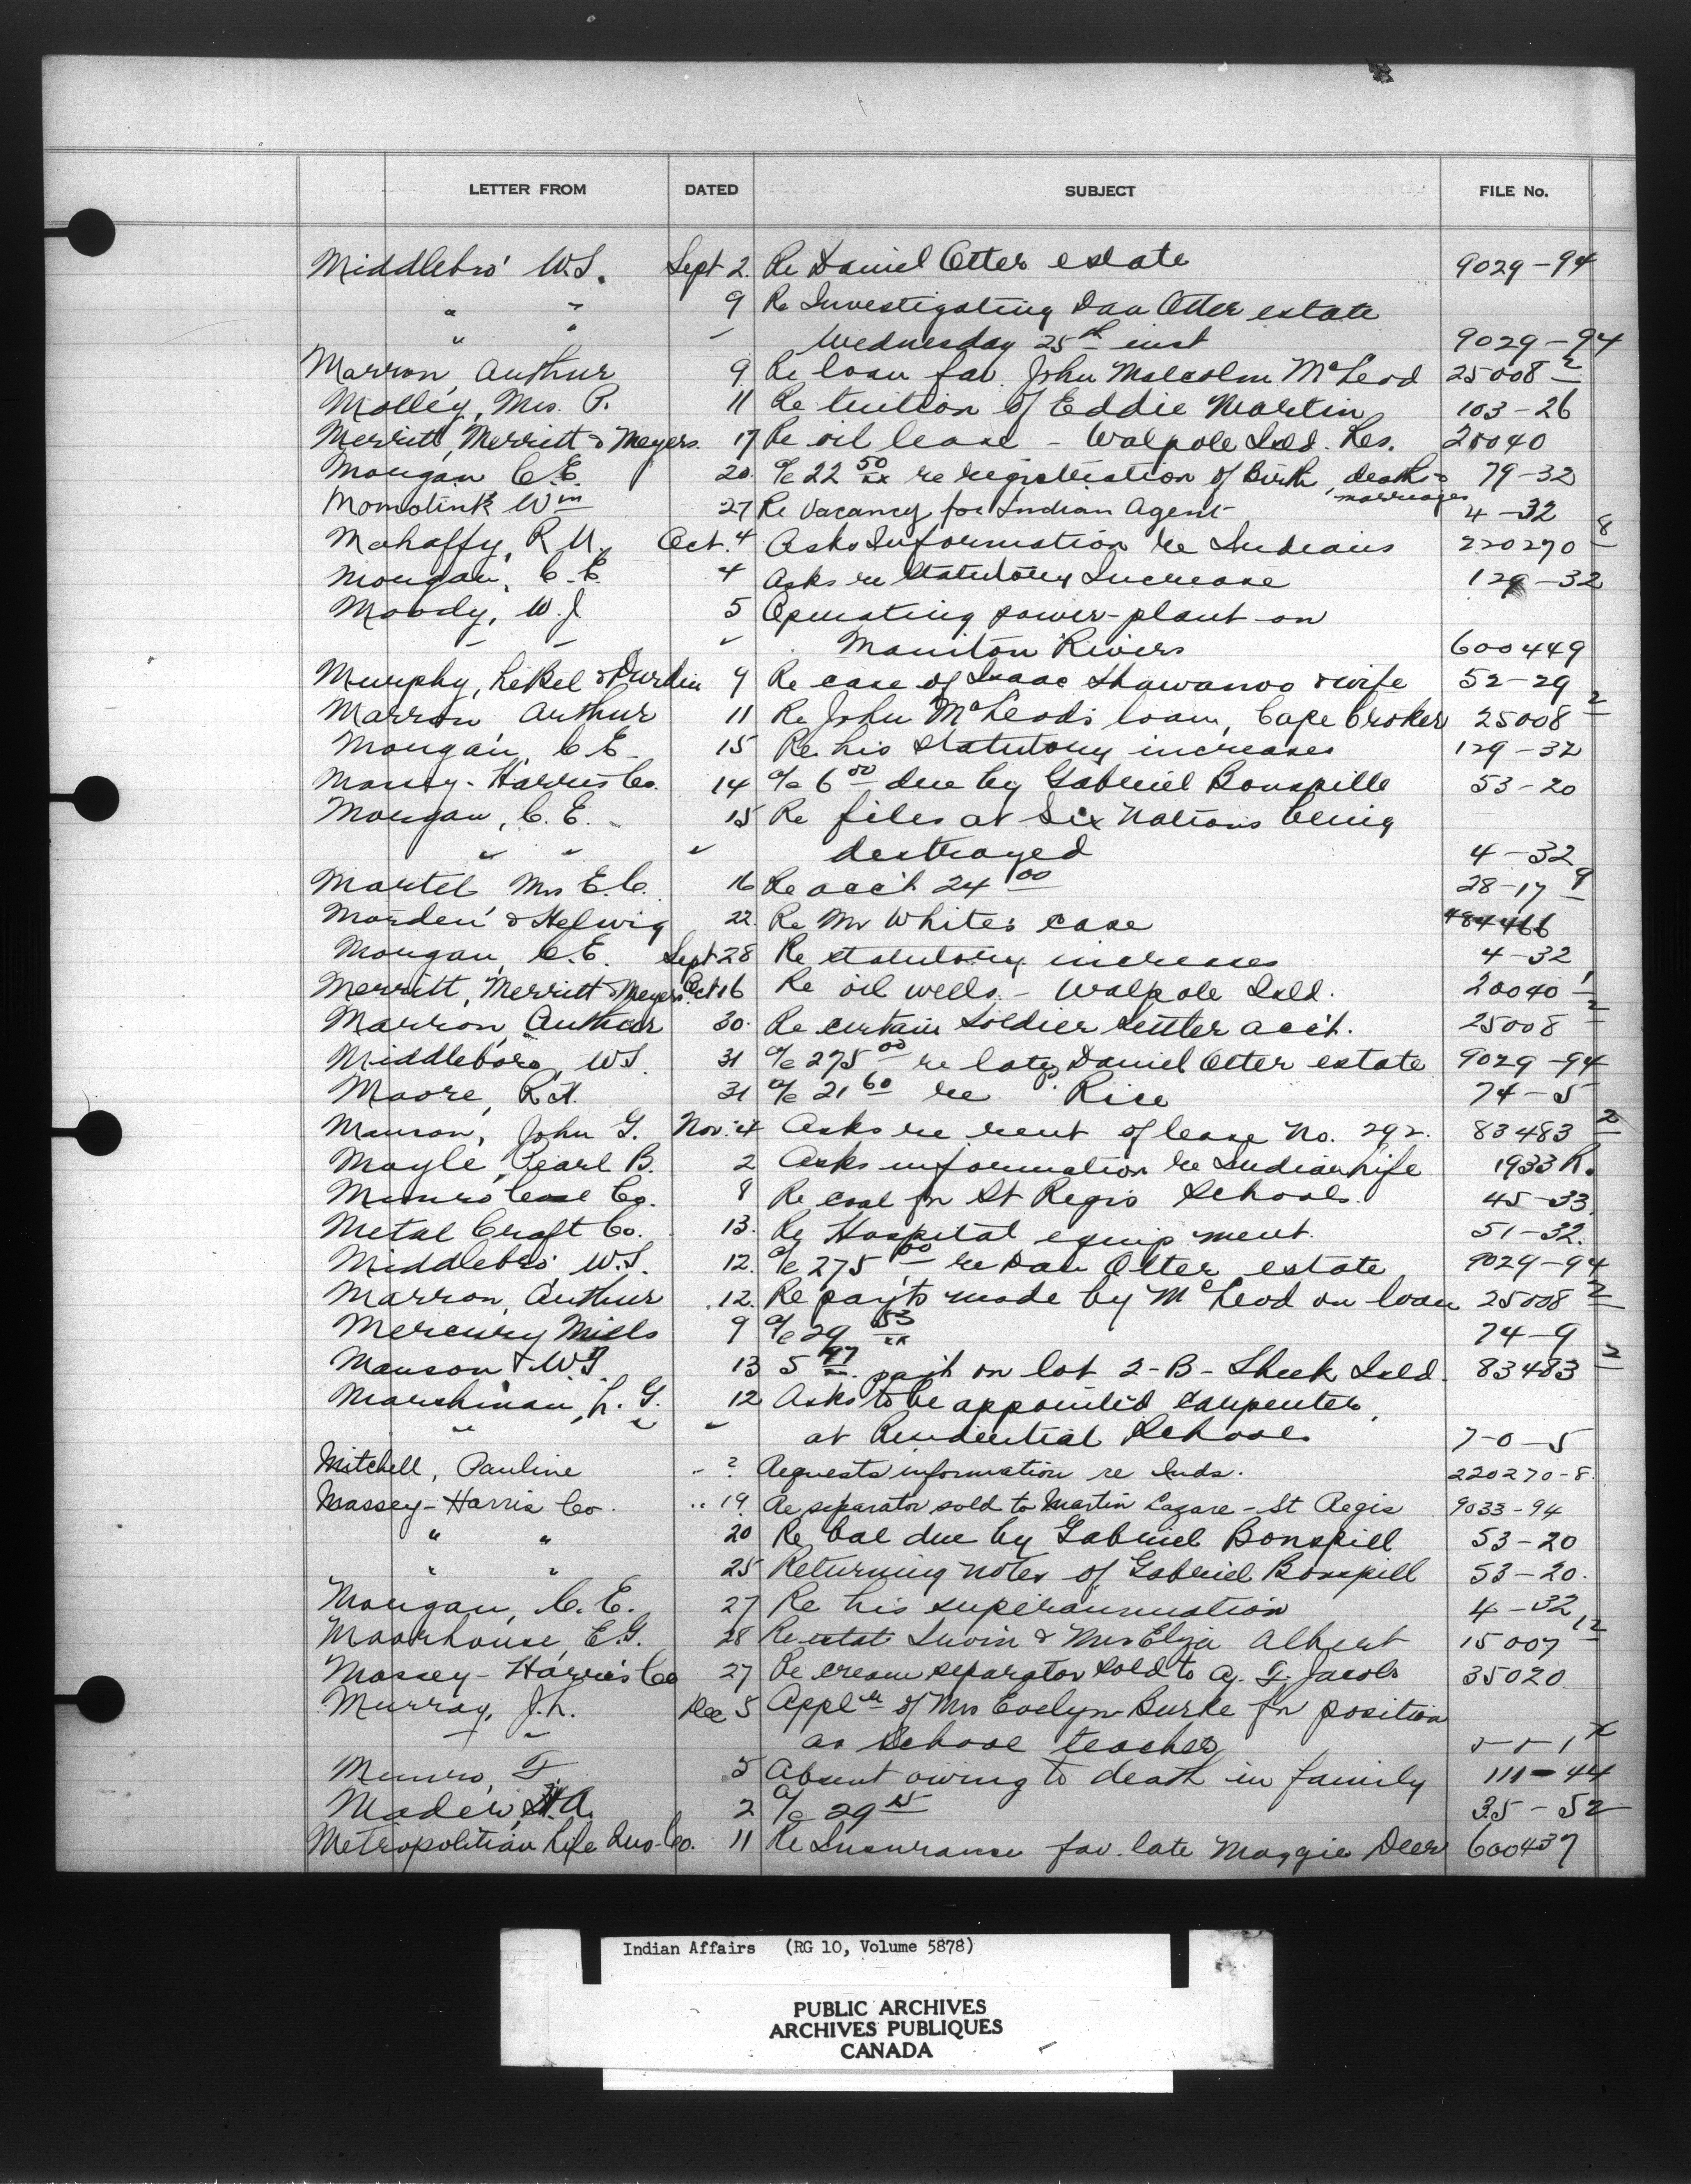 LETTER FROM DATED SUBJECT FILE No.
Middlebro' W.S. Sept 2. Re Daniel Otter estate 9029-94
" " 9 Re Investigating Dan Otter estate
" " " Wednesday 25th inst 9029-94
Marron, Arthur 9 Re loan fav. John Malcolm McLeod 25008-2
Molley, Mrs. P. 11 Re tuition of Eddie Martin 103-26
Merritt, Merritt & Meyers. 17 Re oil lease - Walpole Isld. Res. 20040
Morgan C.E. 20 a/c 22 50/xx re registration of Birth, deaths & marriages 79-32
Momotink Wm 27 Re Vacancy for Indian Agent 4-32
Mahaffy, R.U. Oct. 4 Asks Information re Indians 220270-8
Morgan, C.E. 4 Asks re Statutory Increase 129-32
Moody, W.J. 5 Operating power-plant on
" " " Maniton Rivers 600449
Murphy, LeBel & Durdin 9 Re case of Isaac Shawanoo & wife 52-29
Marron Arthur 11 Re John McLeod's loan, Cape Croker 25008-2
Morgan, C.E. 15 Re his statutory increases 129-32
Massey-Harris Co. 14 a/c 6 00 due by Gabriel Bonspille 53-20
Morgan, C.E. 15 Re files at Six Nations being
" " " destroyed 4-32
Martel Mrs E.C. 16 Re acc't 24 00 28-17-9
Morden & Helwig 22 Re Mr White's case 484466
Morgan, C.E. Sept 28 Re statutory increases 4-32
Merritt, Merritt & Meyers. Oct 16 Re oil wells - Walpole Isld. 20040-1
Marron, Arthur 30. Re certain Soldier Settler acc't. 25008-2
Middleboro, W.S. 31 a/c 275 00 re late Daniel Otter estate 9029-94
Moore, R.H. 31 a/c 21 60 re P. Rice 74-5
Manson, John G. Nov. 4 Asks re rent of lease No. 292. 83483-2
Mayle, Pearl B. 2 Asks information re Indian life 1933 R.
Munro Coal Co. 8 Re coal for St Regis Schools. 45-33
Metal Craft Co. 13. Re Hospital equipment. 51-32.
Middlebro' W.S. 12. a/c 275 00 re Dan Otter estate 9029-94
Marron, Arthur 12. Re pay'ts made by McLeod on loan 25008-2
Mercury Mills 9 a/c 29 53/xx 74-9
Manson, W.G. 13 5 47 pai't on lot 2-B-Sheek Isld. 83483-2
Marshman, L.G. 12 Asks to be appointed Carpenter,
" " " at Residential Schools 7-0-5
Mitchell, Pauline " ? Requests information re Inds. 220270-8.
Massey-Harris Co. " 19. Re separator sold to Martin Lazare - St Regis 9033-94
" " 20 Re bal due by Gabriel Bonspill 53-20
" " 25 Returning notes of Gabriel Bonspill 53-20.
Morgan, C.E. 27 Re his superannuation 4-32
Moorhouse, E.G. 28 Re estate Irwin & Mrs Eliza Albert 15007-12
Massey-Harris Co 27 Re cream separator sold to A. F. Jacobs 35020
Murray, J.L. Dec 5 Applcn of Mrs Evelyn Burke for position
" " as School teacher 5-5-1x
Munro, F 5 Absent owing to death in family 111-44
Mader, H.A. 2 a/c 29 15 35-52
Metropolitian Life Ins. Co. 11 Re Insurance fav. late Maggie Deer 600437
Indian Affairs (RG 10, Volume 5878)
PUBLIC ARCHIVES
ARCHIVES PUBLIQUES
CANADA